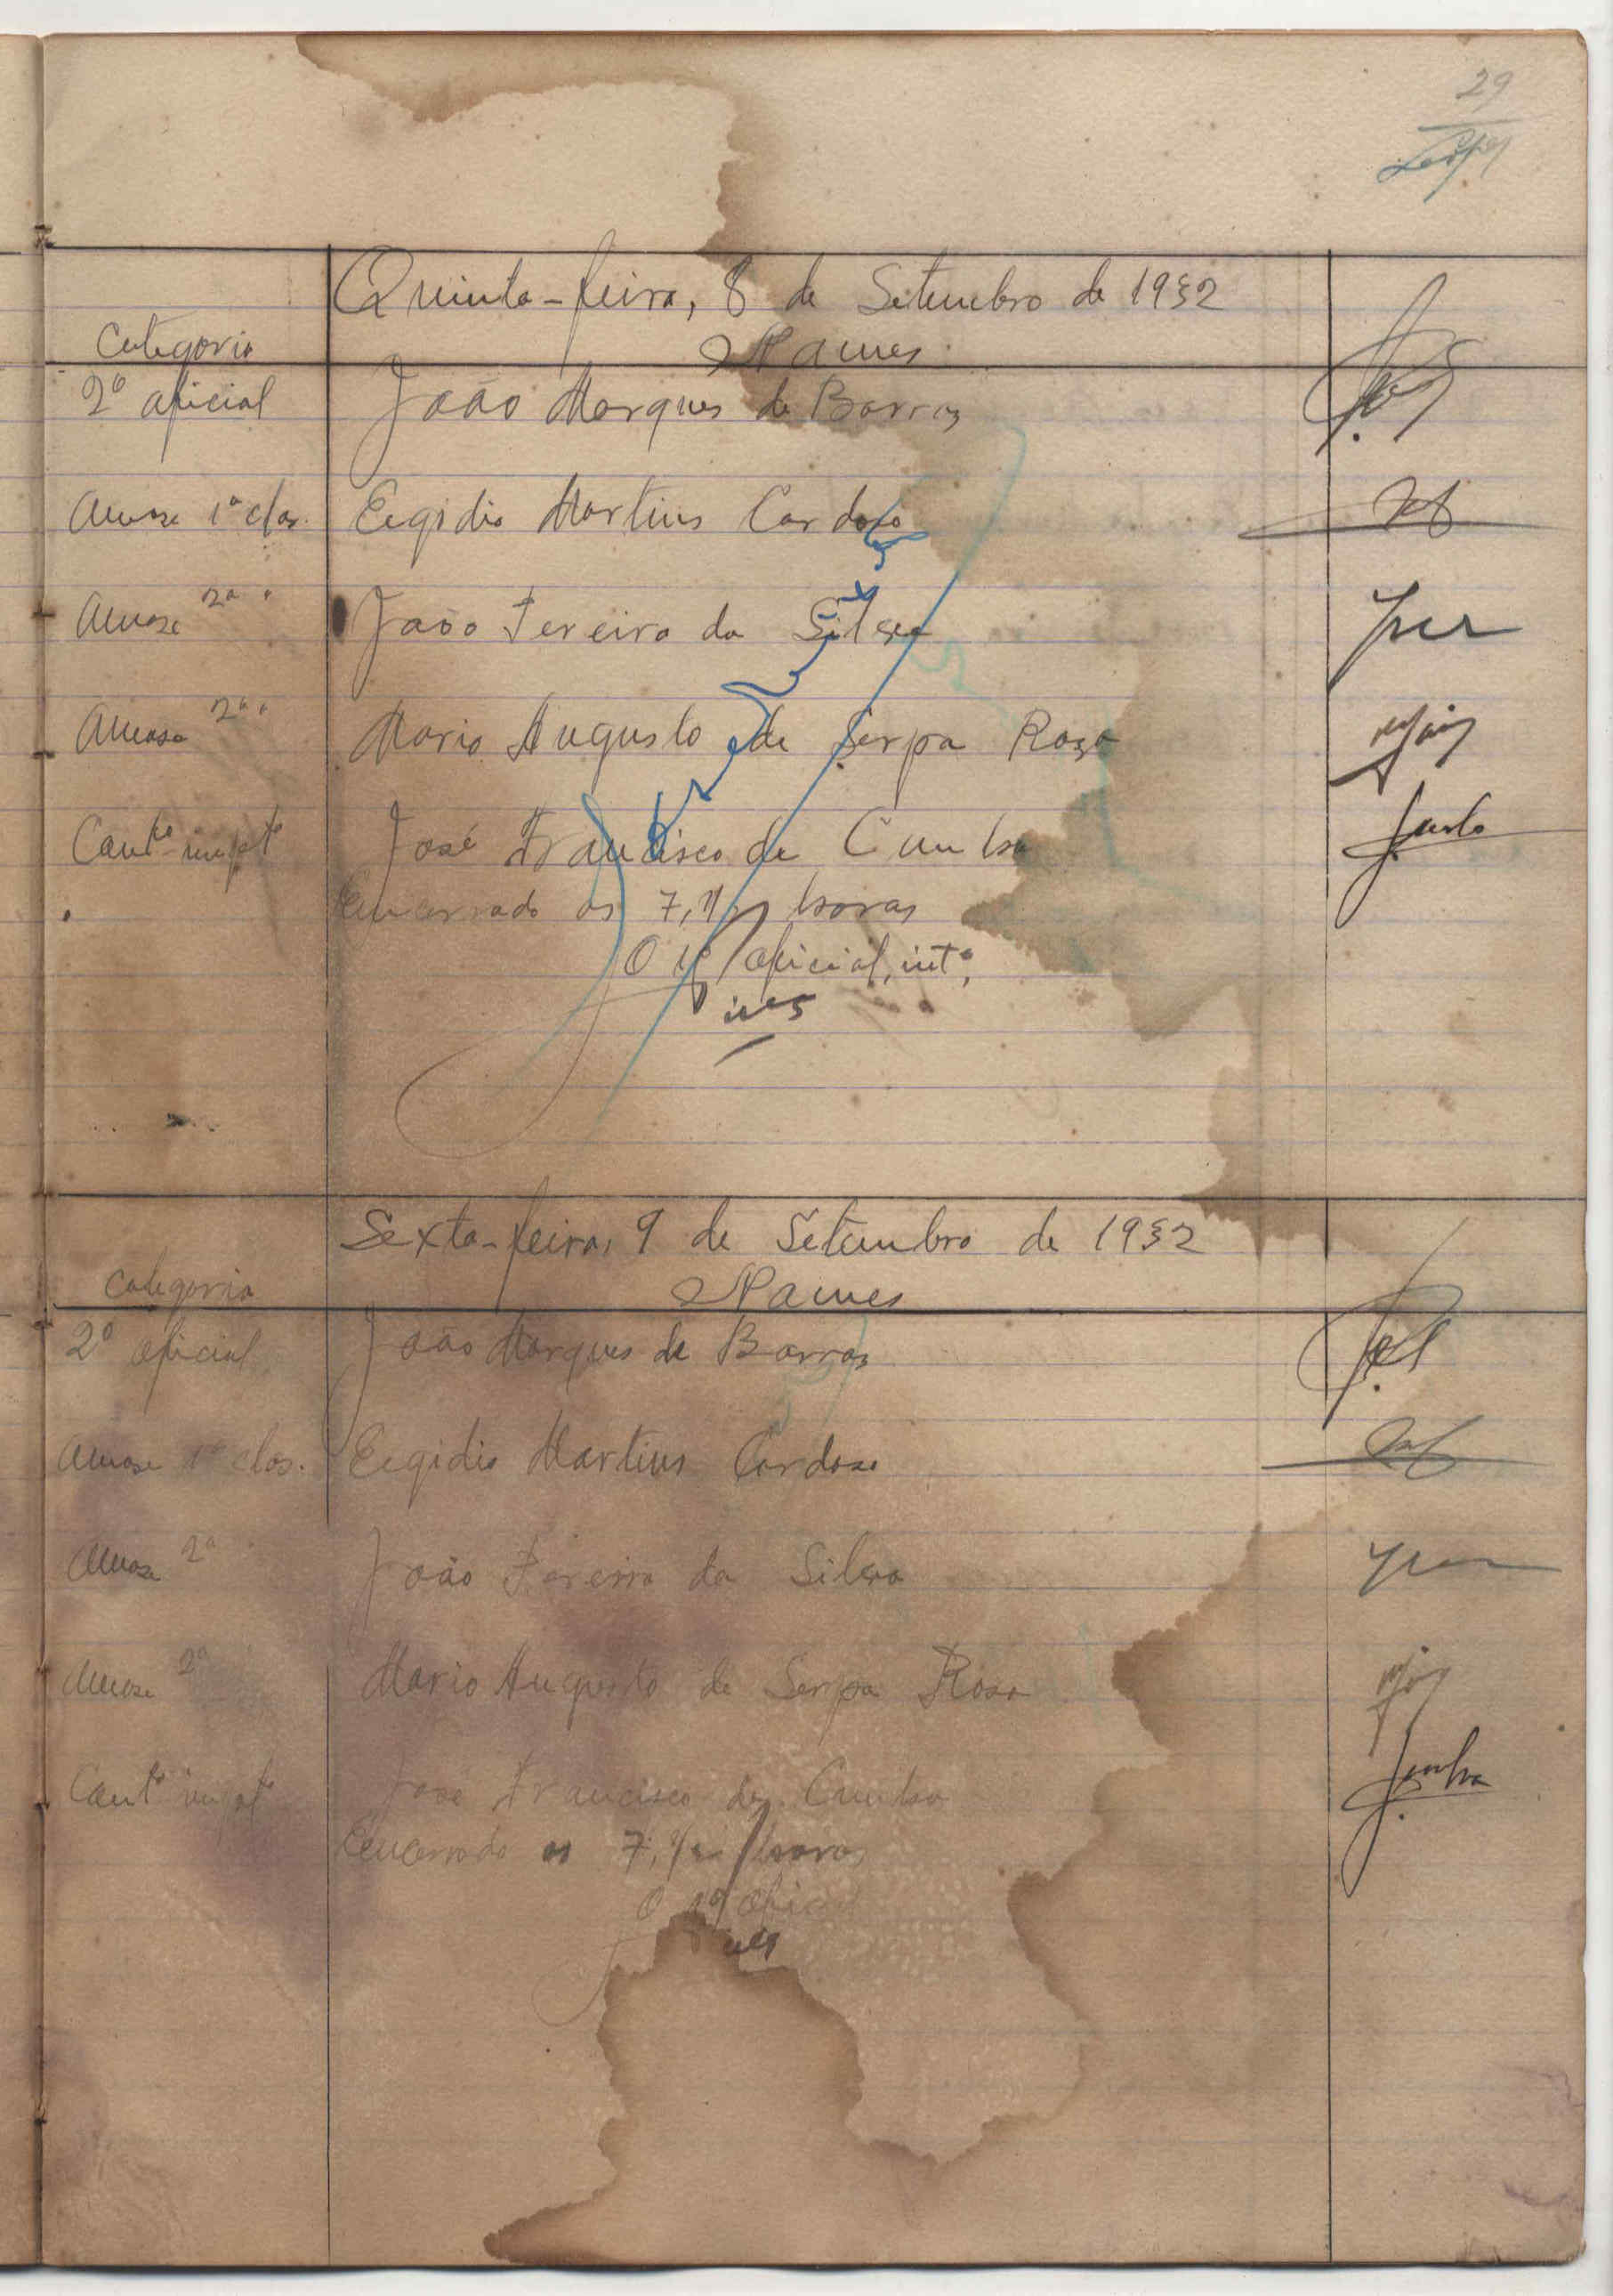 29
Quinta-feira, 8 de Setembro de 1932
Categoria Nomes
2º oficial João Marques de Barros
1ª clas. Eegidio Martins Cardoso
2ª " João Fereira da Silva
2ª " Mario Augusto de Serpa Rosa
José Francisco de Cunha
Encerrado as 7,1/2 horas
O 1º oficial, intº,
Sexta-feira, 9 de Setembro de 1932
Categoria Nomes
2º oficial João Marques de Barros
1ª clas. Eegidio Martins Cardoso
2ª João Fereira da Silva
2ª Mario Augusto de Serpa Rosa
José Francisco de Cunha
Encerrado as 7,1/2 horas
O 1º oficial